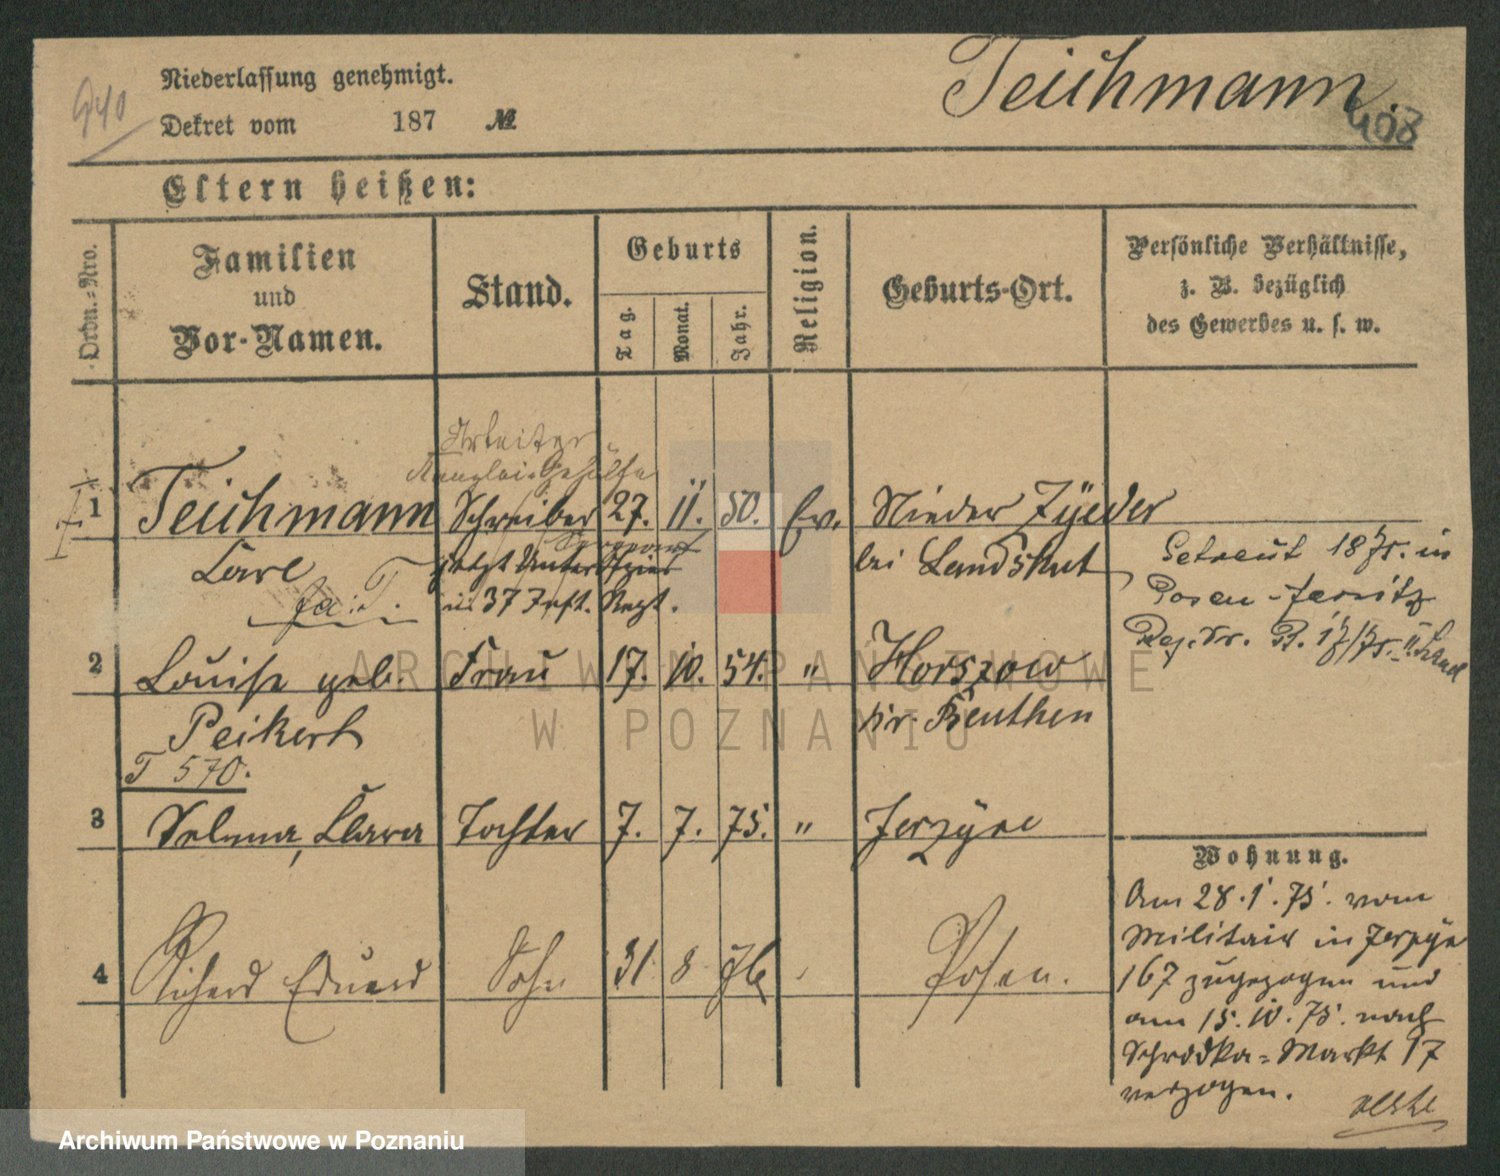 940
Niederlassung genehmigt.
Dekret vom 187 №
Teichmann.
408
Eltern heißen:
Ordn.-Nro.
Familien
und
Vor-Namen.
Stand.
Geburts
Tag.
Monat.
Jahr.
Religion.
Geburts-Ort.
Persönliche Verhältnisse,
z. B. bezüglich
des Gewerbes u. s. w.
Arbeiter
Kanzlei-Gehülfe
1 Teichmann Schreiber 27. 11. 50. Ev. Nieder Zyeder
Carl jetzt Unteroffizier bei Landshut
in 37 Inft. Regt.
Getraut 18 in
Posen-Jersitz
2 Louise geb. Frau 17. 10. 54. " Horszow
Peikert Kr. Beuthen
T 570.
3 Selma, Clara Tochter 7. 7. 75. " Jerzyce
4 Richard Eduard Sohn 31 8 76 Posen.
Wohnung.
Am 28.1.75. vom
Militair in Jerzyce
167 zugezogen und
am 15.10.75. nach
Schrodka-Markt 17
verzogen.
ARCHIWUM PAŃSTWOWE
W POZNANIU
Archiwum Państwowe w Poznaniu